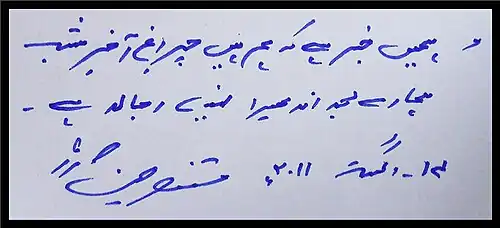 ہمیں خبر ہے کہ ہم ہیں چراغِ آخرِ شب
ہمارے بعد اندھیرا نہیں اجالا ہے ۔
۱۳ ۔ اگست ۲۰۱۱ء مستنصر حسین تارڑ